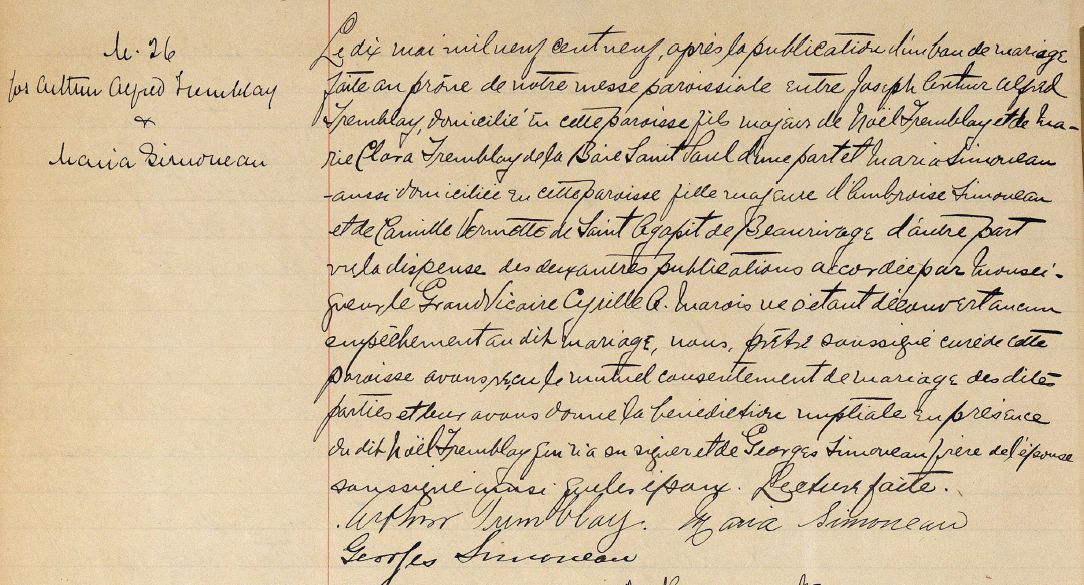 M. 26
Jos Arthur Alfred Tremblay
&
Maria Simoneau
Le dix mai mil neuf cent neuf, après la publication d'un ban de mariage
faite au prône de notre messe paroissiale entre Joseph Arthur Alfred
Tremblay, domicilié en cette paroisse fils majeur de Noël Tremblay et de Ma-
rie Clara Tremblay de la Baie Saint Paul d'une part et Maria Simoneau
aussi domiciliée en cette paroisse fille majeure d'Ambroise Simoneau
et de Camille Vermette de Saint Agapit de Beaurivage d'autre part
vu la dispense des deux autres publications accordée par Monsei-
gneur le Grand Vicaire Cyrille A. Marois ne s'étant découvert aucun
empêchement au dit mariage, nous, prêtre soussigné curé de cette
paroisse avons reçu le mutuel consentement de mariage des dites
parties et leur avons donné la bénédiction nuptiale en présence
du dit Noël Tremblay qui n'a su signer et de Georges Simoneau frère de l'épouse
soussigné ainsi que les époux. Lecture faite.
Arthur Tremblay. Maria Simoneau
Georges Simoneau